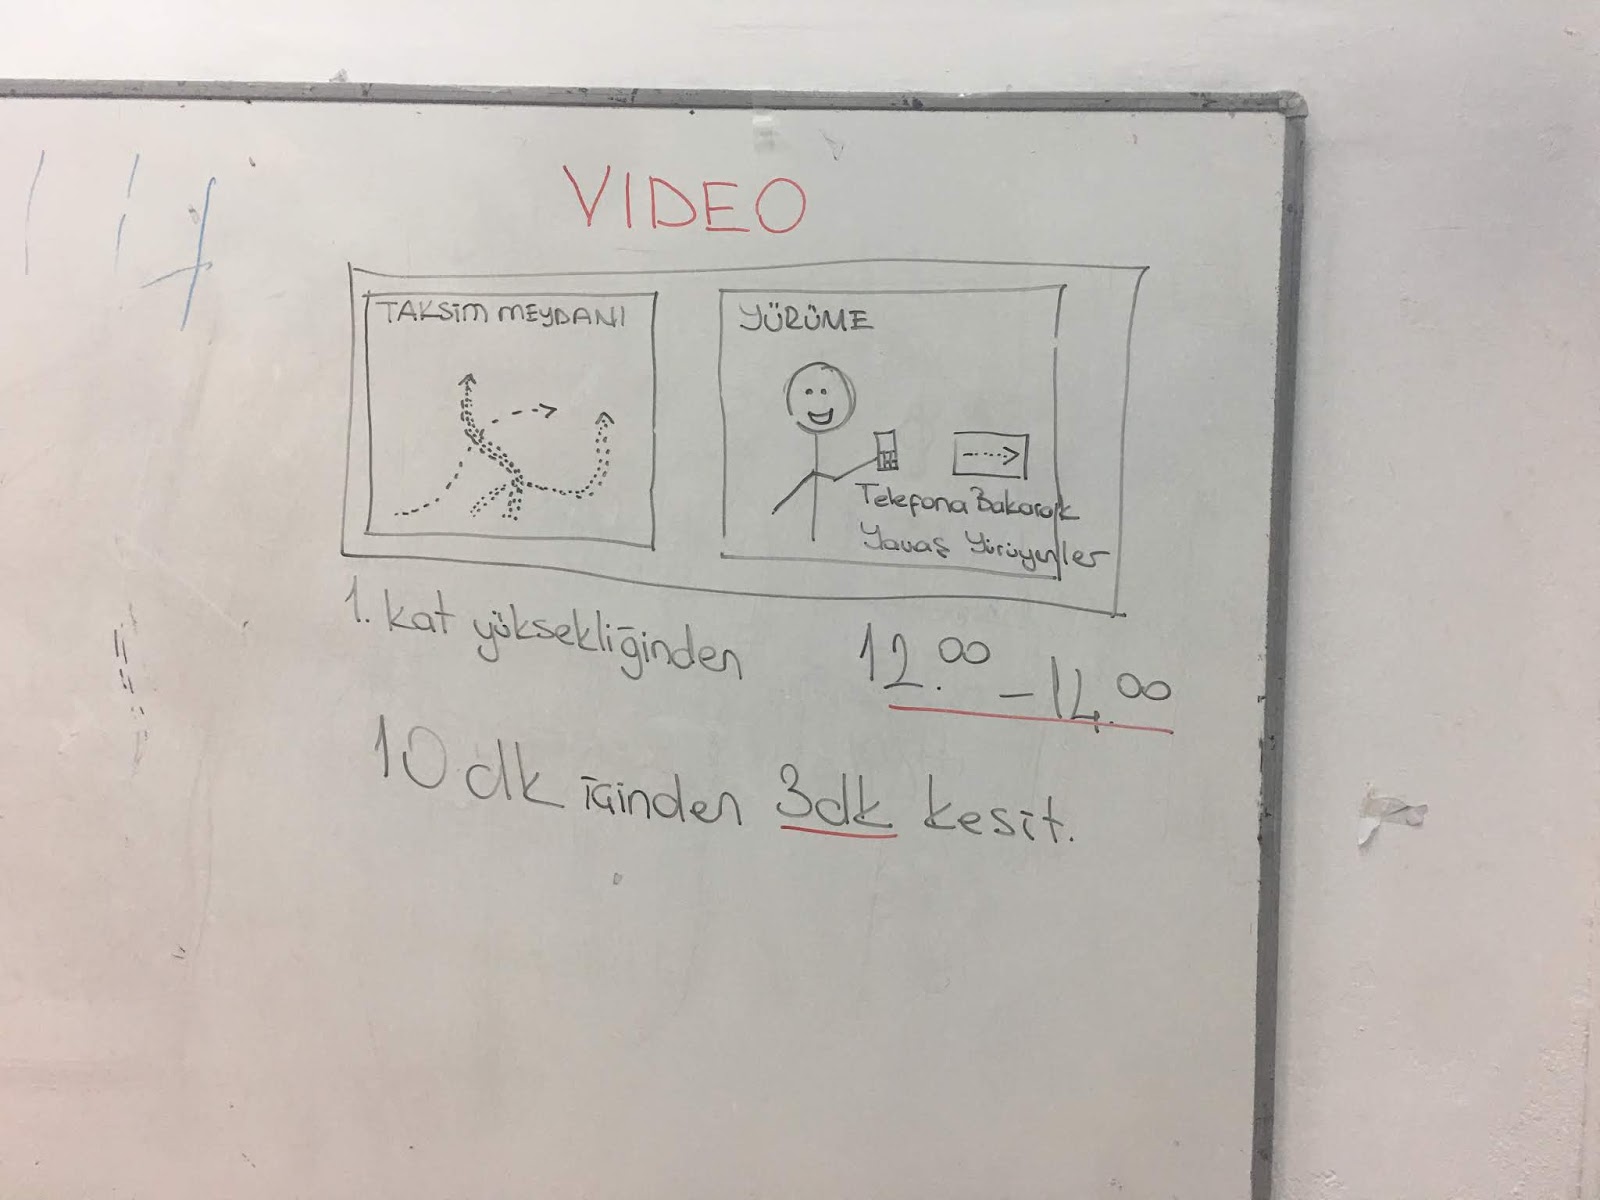 VIDEO
TAKSİM MEYDANI
YÜRÜME
Telefona Bakarak
Yavaş Yürüyenler
1. kat yüksekliğinden
12.00 - 14.00
10 dk içinden 3dk kesit.